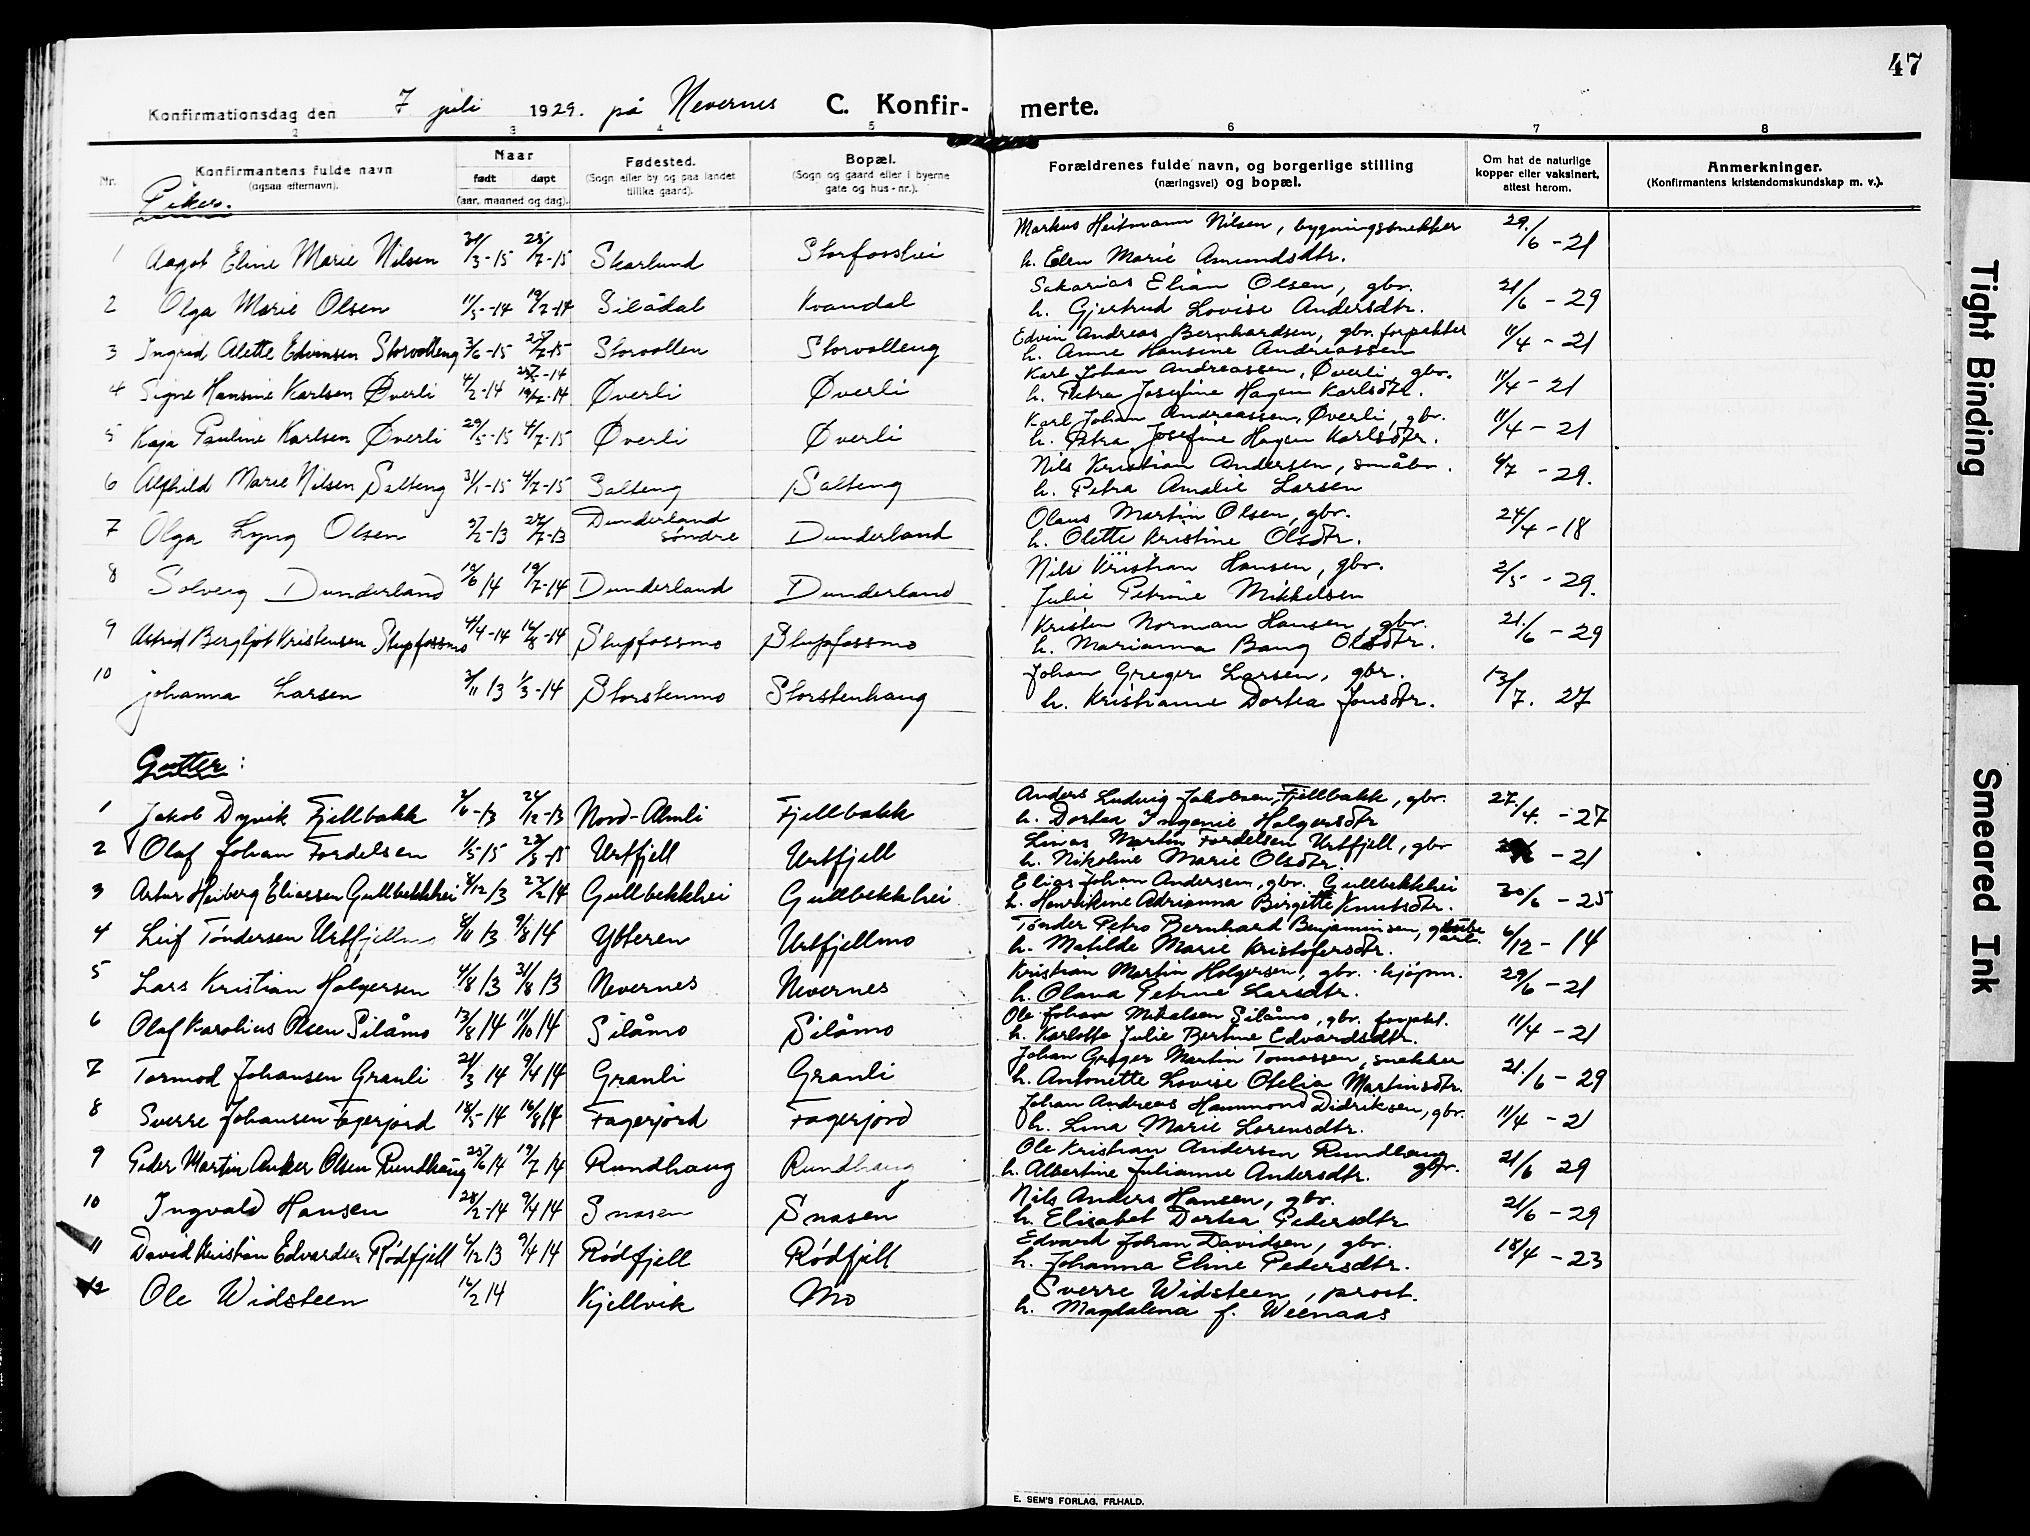 47
Konfirmationsdag den 7 juli 1929. på Nevernes C. Konfir- merte.
1 2 3 4 5 6 7 8
Nr. Konfirmantens fulde navn (ogsaa efternavn). Naar født døpt (aar, maaned og dag). Fødested. (Sogn eller by og paa landet tillike gaard). Bopæl. (Sogn og gaard eller i byerne gate og hus-nr.). Forældrenes fulde navn, og borgerlige stilling (næringsvei) og bopæl. Om hat de naturlige kopper eller vaksinert, attest herom. Anmerkninger. (Konfirmantens kristendomskundskap m. v.).
Piker.
1 Aagot Eline Marie Nilsen /3-15 25/7-15 Skarlund Storfosshei Markus Heitmann Nilsen, bygningssnekker 29./6-21
h. Elen Marie Amundsdtr.
2 Olga Marie Olsen 11/5-14 19/7-14 Silådal Kvandal Sakarias Elian Olsen, gbr. 21/6-29
h. Gjertrud Lovise Andersdtr.
3 Ingrid Alette Edvinsen Storvolleng 3/6-15 25/7-15 Storvollen Storvolleng Edvin Andreas Bernhardsen, gbr. forpakter 11/4-21
h. Anne Hansine Andreassen
4 Signe Hansine Karlsen Øverli 4/2-14 19/7-14 Øverli Øverli Karl Johan Andreassen, Øverli, gbr. 11/4-21
h. Petra Josefine Hagen Karlsdtr.
5 Kaja Pauline Karlsen Øverli 29/5-15 4/7-15 Øverli Øverli Karl Johan Andreassen, Øverli, gbr. 11/4-21
h. Petra Josefine Hagen Karlsdtr.
6 Alfhild Marie Nilsen Salteng 31/1-15 4/7-15 Salteng Salteng Nils Kristian Andersen, småbr. 4/7-29.
h. Petra Amalie Larsen
7 Olga Lyng Olsen /2-13 27/7-13 Dunderland søndre Dunderland Olaus Martin Olsen, gbr. 24/4-18
h. Olette Kristine Olsdtr.
8 Solveig Dunderland 10/6 14 19/7-14 Dunderland Dunderland Nils Kristian Hansen, gbr. 2/5-29.
Julie Petrine Mikkelsen
9 Astrid Bergljot Kristensen Stupfossmo 4/4-14 16/8-14 Stupfossmo Stupfossmo Kristen Norman Hansen, gbr. 21./6-29
h. Marianna Bang Olsdtr.
10 Johanna Larsen 3/11 13 1/3-14 Storstenmo Storstenhaug Johan Greger Larsen, gbr. 13/7. 27
h. Kristianne Dortea Jonsdtr.
Gutter:
1 Jakob Dyvik Fjellbakk 2/6-13 26/12-13 Nord-Almli Fjellbakk Anders Ludvig Jakobsen, Fjellbakk, gbr. 27./4.-27
h. Dortea Ingenie Holgersdtr
2 Olaf Johan Fordelsen 1/5 15 /5-15 Urtfjell Urtfjell Linas Martin Fordelsen Urtfjell, gbr -21
h. Nikoline Marie Olsdtr.
3 Artur Heiberg Eliassen Gullbekkhei /12 13 22/2 14 Gullbekkhei Gullbekkhei Elias Johan Andersen, gbr. Gullbekkhei 30/6-25
h. Henrikine Adrianna Birgitte Knutsdtr.
4 Leif Tøndersen Urtfjellmo 8/11 13 9/8 14 Ytteren Urtfjellmo Tønder Petro Bernhard Benjaminsen, gruvearb. 6/12-14
h. Matilde Marie Kristofersdtr.
5 Lars Kristian Holgersen 4/8 13 31/8 13 Nevernes Nevernes Kristian Martin Holgersen, gbr. kjøpm. 29/6-21
h. Olava Petrine Larsdtr.
6 Olaf Karolius Olsen Silåmo 13/8 14 11/10 14 Silåmo Silåmo Ole Johan Mikalsen Silåmo, gbr. forpakt. 11/4-21
h. Karlotte Julie Bertine Edvardsdtr.
7 Tormod Johansen Granli 21/3 14 9/4 14 Granli Granli Johan Greger Martin Tomassen, snekker 21./6-29
h. Antonette Lovise Otelia Martinsdtr.
8 Sverre Johansen Fagerjord 18/5-14 16/8 14 Fagerjord Fagerjord Johan Andreas Hammond Didriksen, gbr. 11/4-21
h. Lina Marie Lorensdtr.
9 Peder Martin Anker Olsen Rundhaug 25/6 14 19/7 14 Rundhaug Rundhaug Ole Kristian Andersen Rundhaug gbr. 21/6 29
h. Albertine Julianne Andersdtr.
10 Ingvald Hansen 28/2-14 9/4 14 Snasen Snasen Nils Anders Hansen, gbr. 21/6-29
h. Elisabet Dortea Pedersdtr
11 David Kristian Edvardsen Rødfjell /12 13 9/4 14 Rødfjell Rødfjell Edvard Johan Davidsen, gbr. 18/4-23
h. Johanna Eline Pedersdtr.
12 Ole Widsteen 16/2 14 Kjellvik Mo Sverre Widsteen, prost.
h. Magdalena f. Weenaas
E. SEM'S FORLAG. FR.HALD.
Tight Binding
Smeared Ink